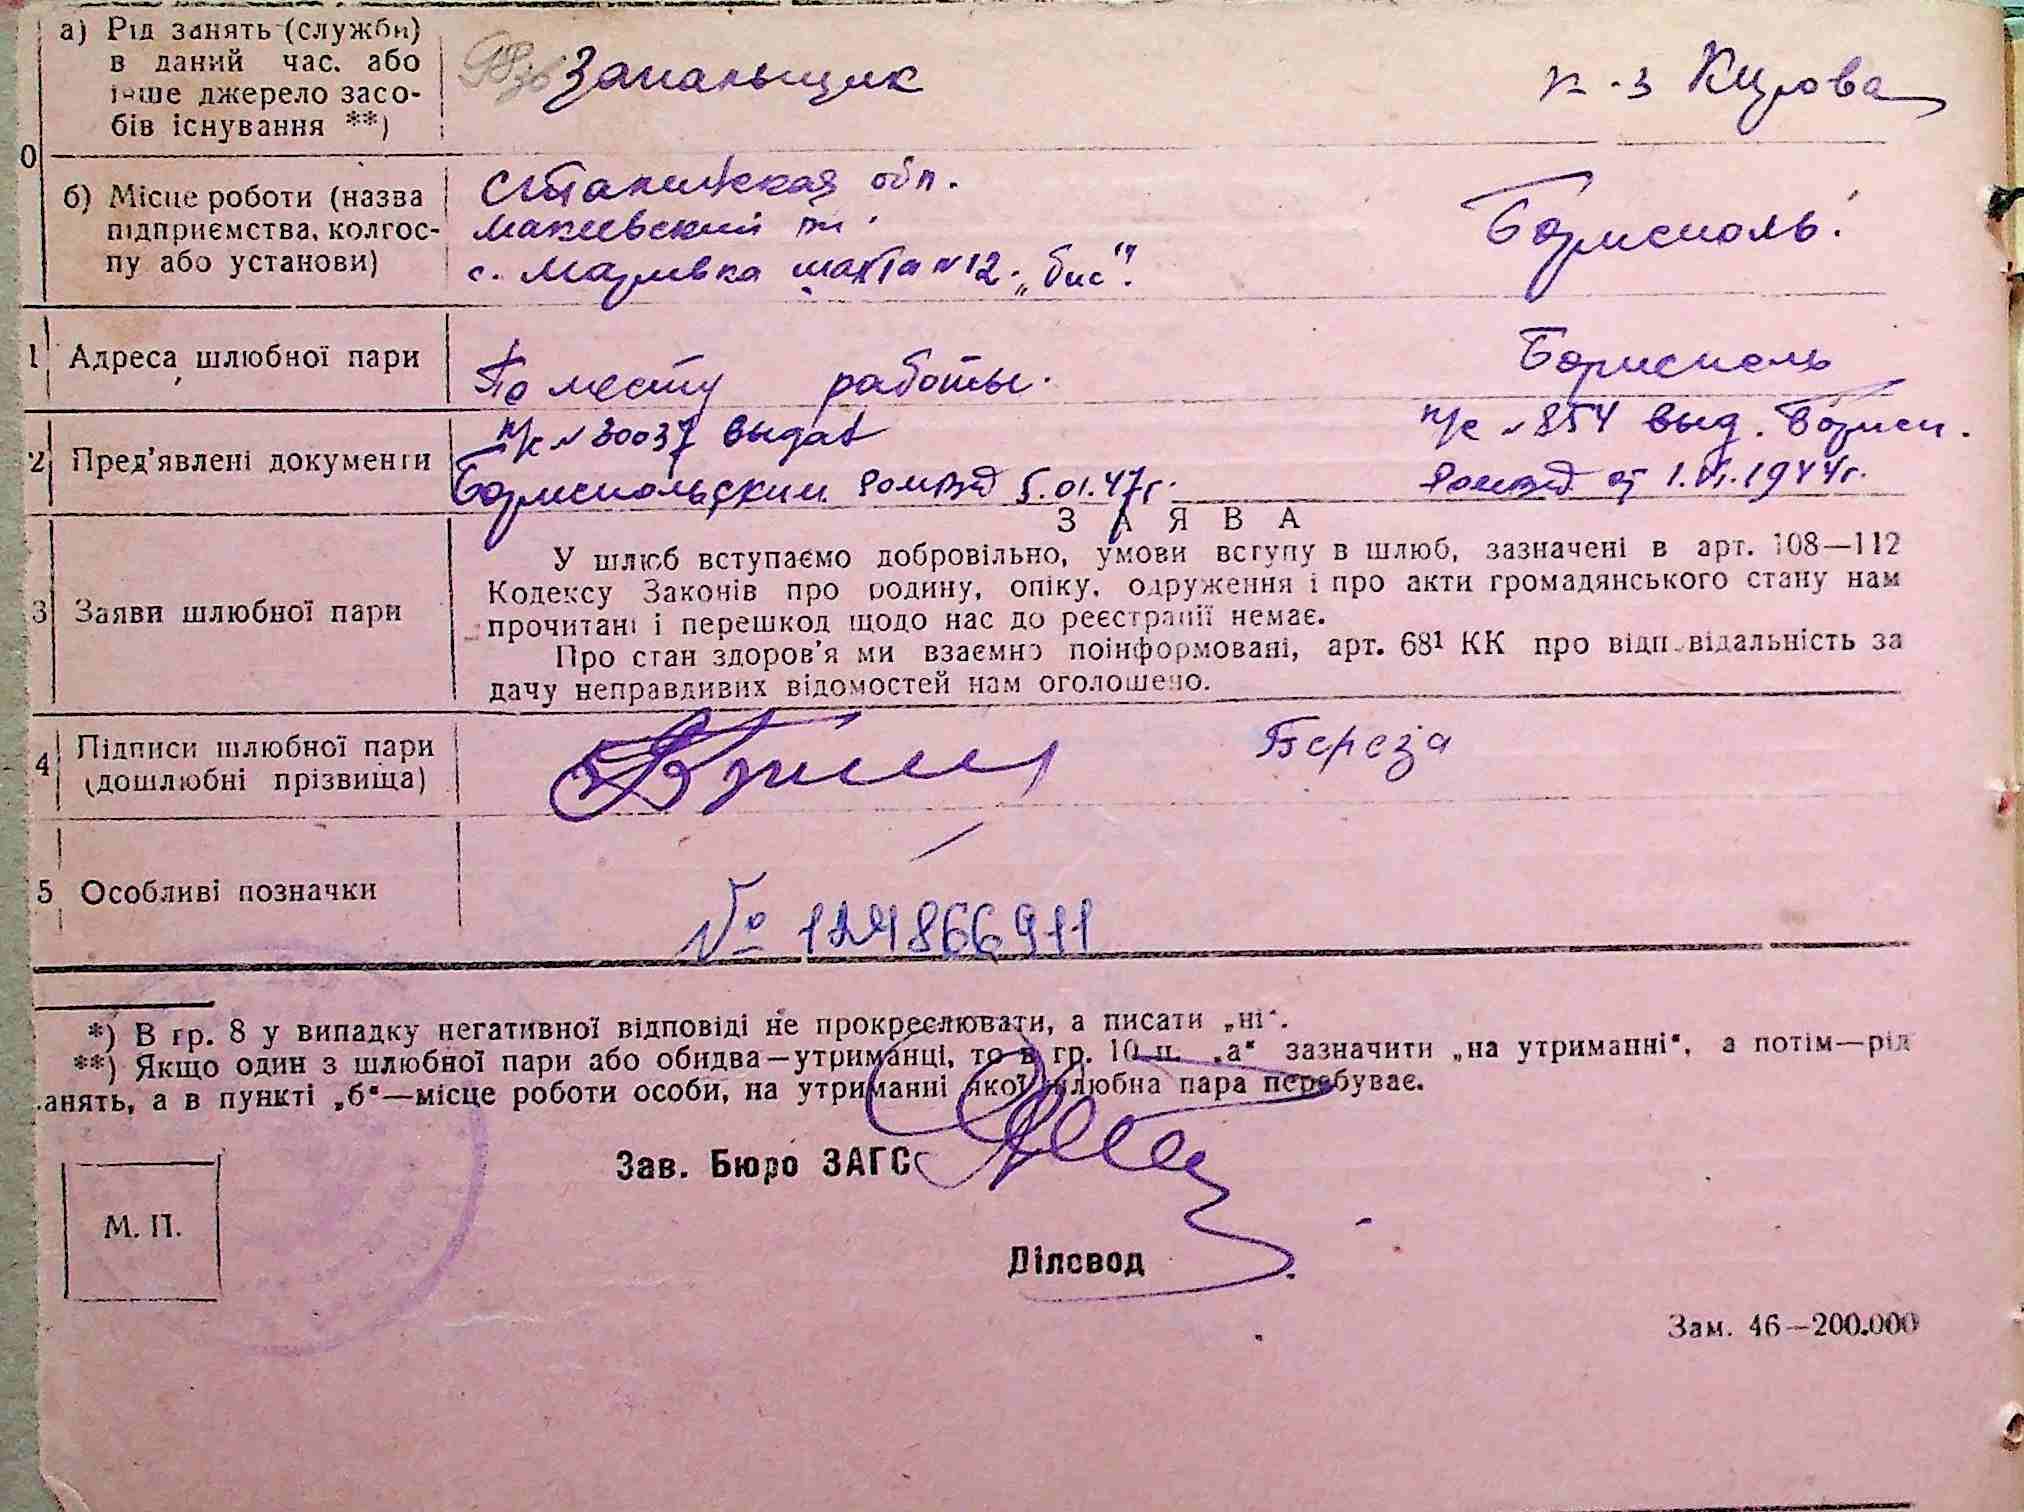 а) Рід занять (служби) в даний час. або інше джерело засобів існування **)
Запальщик
к-з Кирова
0
б) Місце роботи (назва підприємства, колгоспу або установи)
Сталинская обл.
Макеевский
с. шахта №12 - „бис".
Борисполь.
1 Адреса шлюбної пари
По месту работы.
Борисполь
2 Пред'явлені документи
п/к №30037 выдав
Бориспольским 5.01.47г.
п/с №854 выд. Борисп.
от 1.VI.1944г.
З А Я В А
3 Заяви шлюбної пари
У шлюб вступаємо добровільно, умови вступу в шлюб, зазначені в арт. 108—112
Кодексу Законів про родину, опіку, одруження і про акти громадянського стану нам
прочитані і перешкод щодо нас до реєстрації немає.
Про стан здоров'я ми взаємно поінформовані, арт. 68¹ КК про відповідальність за
дачу неправдивих відомостей нам оголошено.
4 Підписи шлюбної пари
(дошлюбні прізвища)
Береза
5 Особливі позначки
№ 124866911
*) В гр. 8 у випадку негативної відповіді не прокреслювати, а писати „ні".
**) Якщо один з шлюбної пари або обидва—утриманці, то в гр. 10 п. „а" зазначити „на утриманні", а потім—рід
занять, а в пункті „б"—місце роботи особи, на утриманні якої шлюбна пара перебуває.
Зав. Бюро ЗАГС
М. П.
Діловод
Зам. 46—200.000